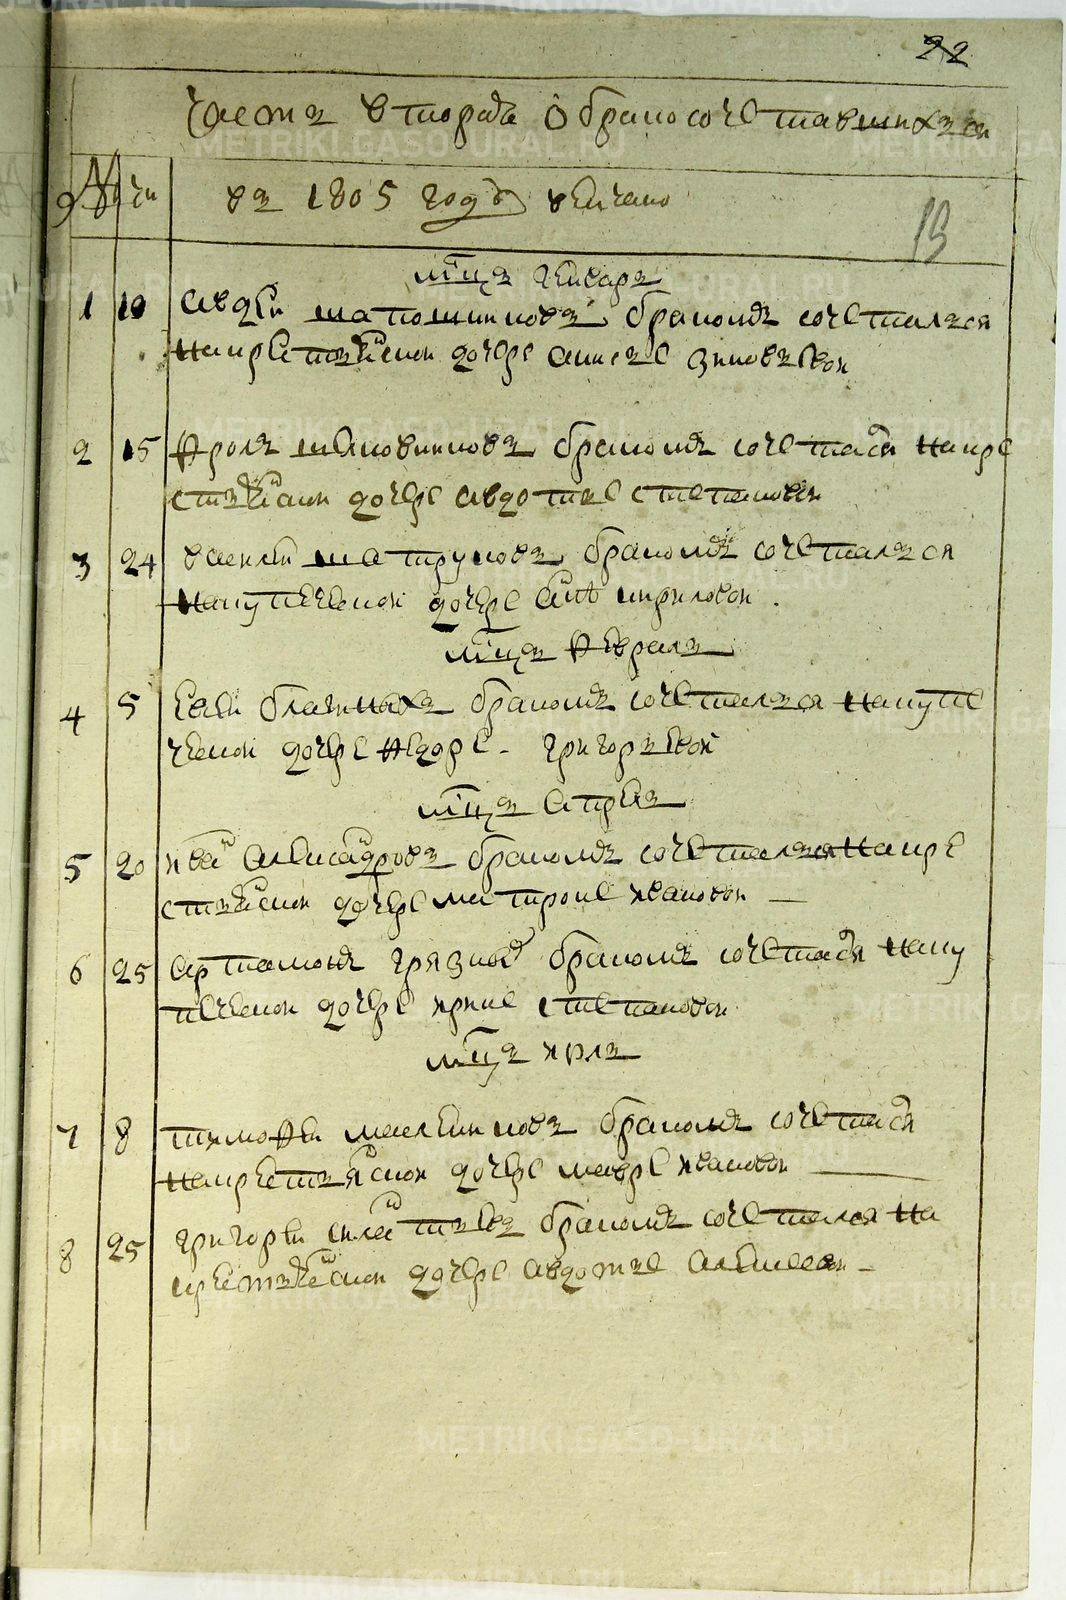 22
Часть вторая о бракосочетавшихся
№ чи
въ 1805 году венчано
19
мца генваря
1 10 Авдей Шапошниковъ бракомъ сочеталъся
на крестьянской дочере Анисье Зиновьевой
2 15 Фролъ бракомъ сочетался на кре
стьянской дочере Авдотье Степановой
3 24 Василей бракомъ сочеталъся
на купеческой дочере Анне Кириловой
мца февраля
4 5 Евсей бракомъ сочеталъся на купе
ческой дочере Федоре Григорьевой
мца апреля
5 20 Иван Александровъ бракомъ сочеталъся на кре
стьянской дочере Матроне Ивановой
6 25 Артамонъ Грязной бракомъ сочетался на ку
печеской дочере Ирине Степановой
мца июля
7 8 Тимофей бракомъ сочетался
на крестьянской дочере Мавре Ивановой
8 25 Григорей бракомъ сочетался на
крестьянской дочере Авдотье Алексеевой
METRIKI.GASO-URAL.RU